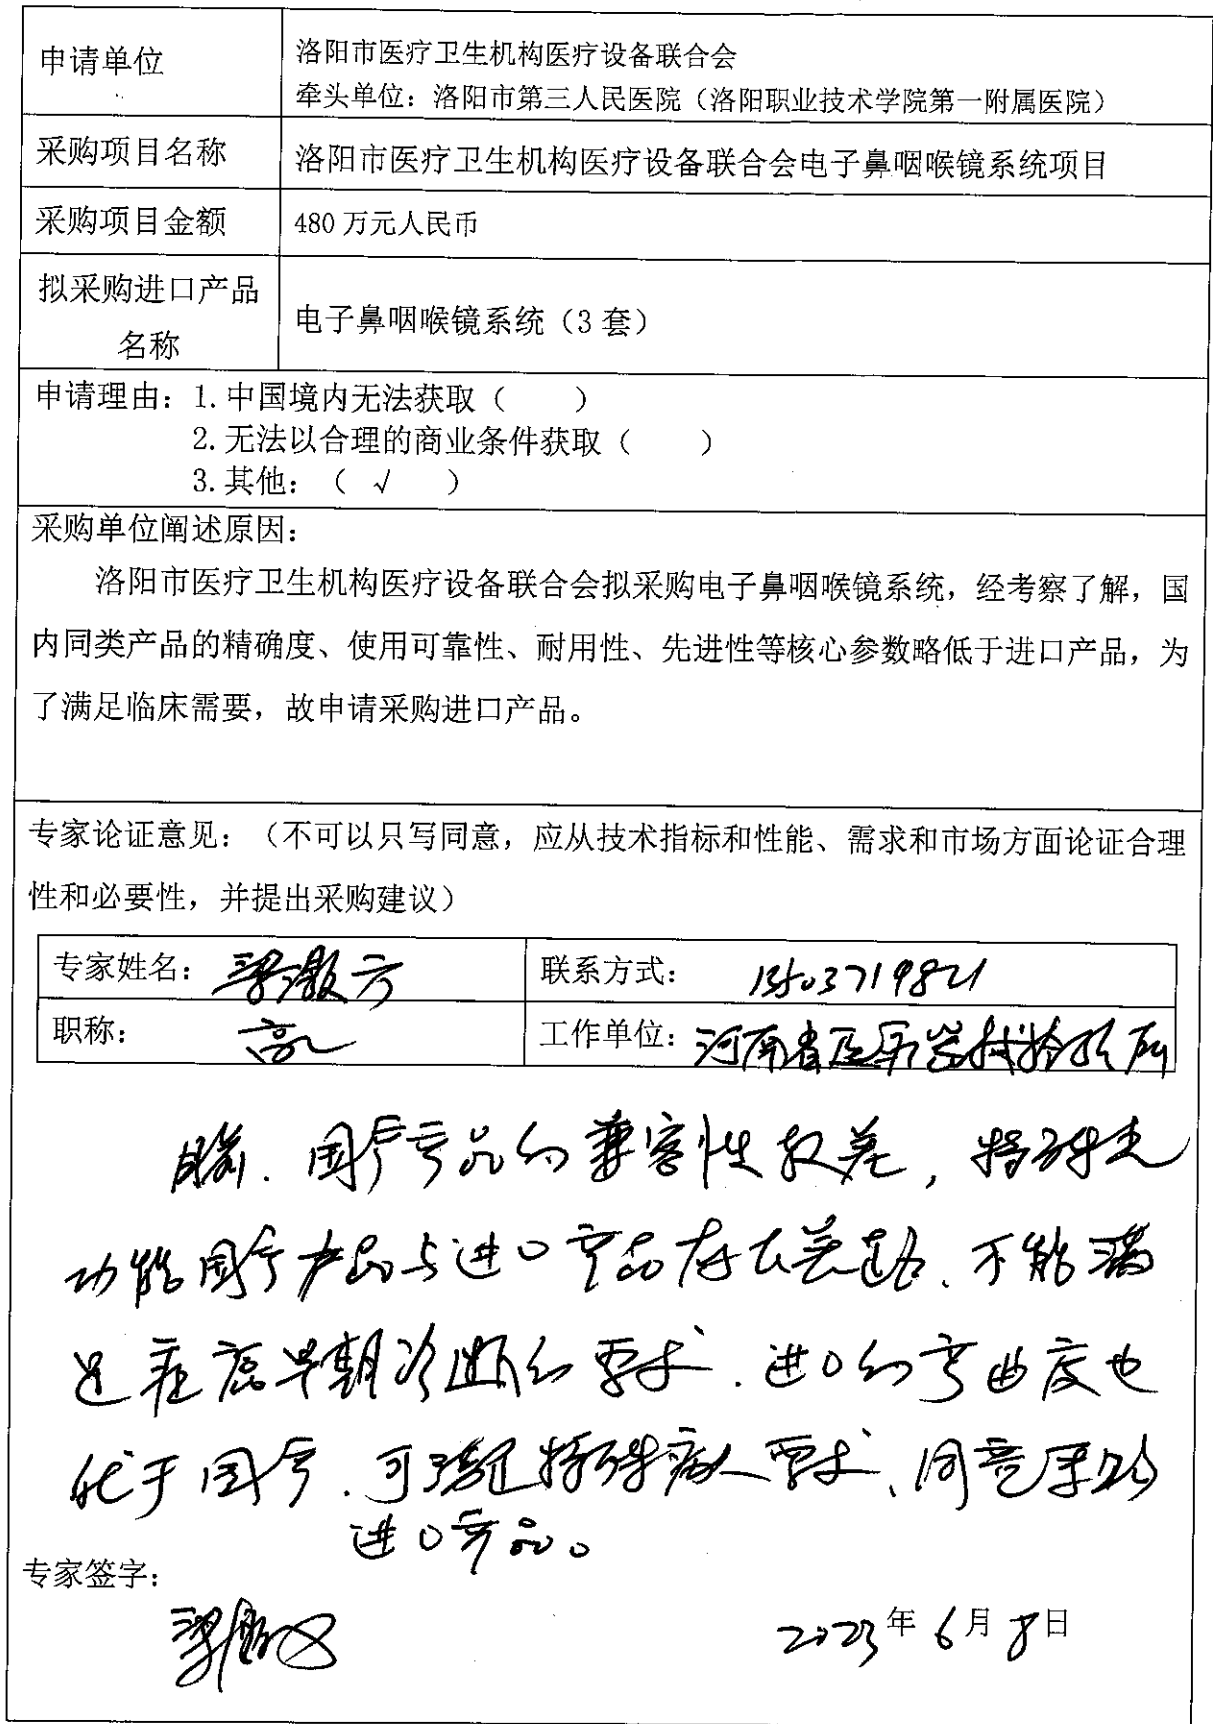 申请单位
洛阳市医疗卫生机构医疗设备联合会
牵头单位：洛阳市第三人民医院（洛阳职业技术学院第一附属医院）
采购项目名称
洛阳市医疗卫生机构医疗设备联合会电子鼻咽喉镜系统项目
采购项目金额
480 万元人民币
拟采购进口产品
名称
电子鼻咽喉镜系统（3 套）
申请理由：1.中国境内无法获取（　　）
2.无法以合理的商业条件获取（　　）
3.其他：（ √　）
采购单位阐述原因：
洛阳市医疗卫生机构医疗设备联合会拟采购电子鼻咽喉镜系统，经考察了解，国
内同类产品的精确度、使用可靠性、耐用性、先进性等核心参数略低于进口产品，为
了满足临床需要，故申请采购进口产品。
专家论证意见：（不可以只写同意，应从技术指标和性能、需求和市场方面论证合理
性和必要性，并提出采购建议）
专家姓名：梁
联系方式：13503719821
职称：高工
工作单位：河南省医疗器械检验所
国产产品的兼容性较差，特殊光
功能国产产品与进口产品存在差距、不能满
足癌早期诊断的要求．进口的弯曲度也
优于国产．可满足特殊病人要求、同意采购
进口产品。
专家签字：
梁
2023年6月8日